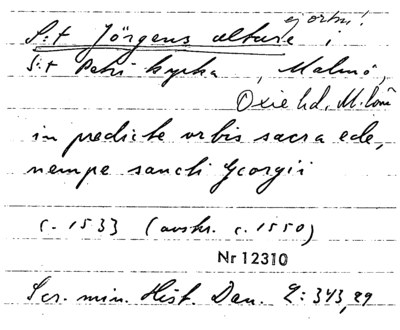 ej ortn!
S:t Jörgens altare i
S:t Petri kyrka, Malmö,
Oxie hd, M.län
in predicte urbis sacra ede,
nempe sancti Georgii
c. 1533 (avskr. c. 1550)
Nr 12310
Scr. min. Hist. Dan. 2:343,29